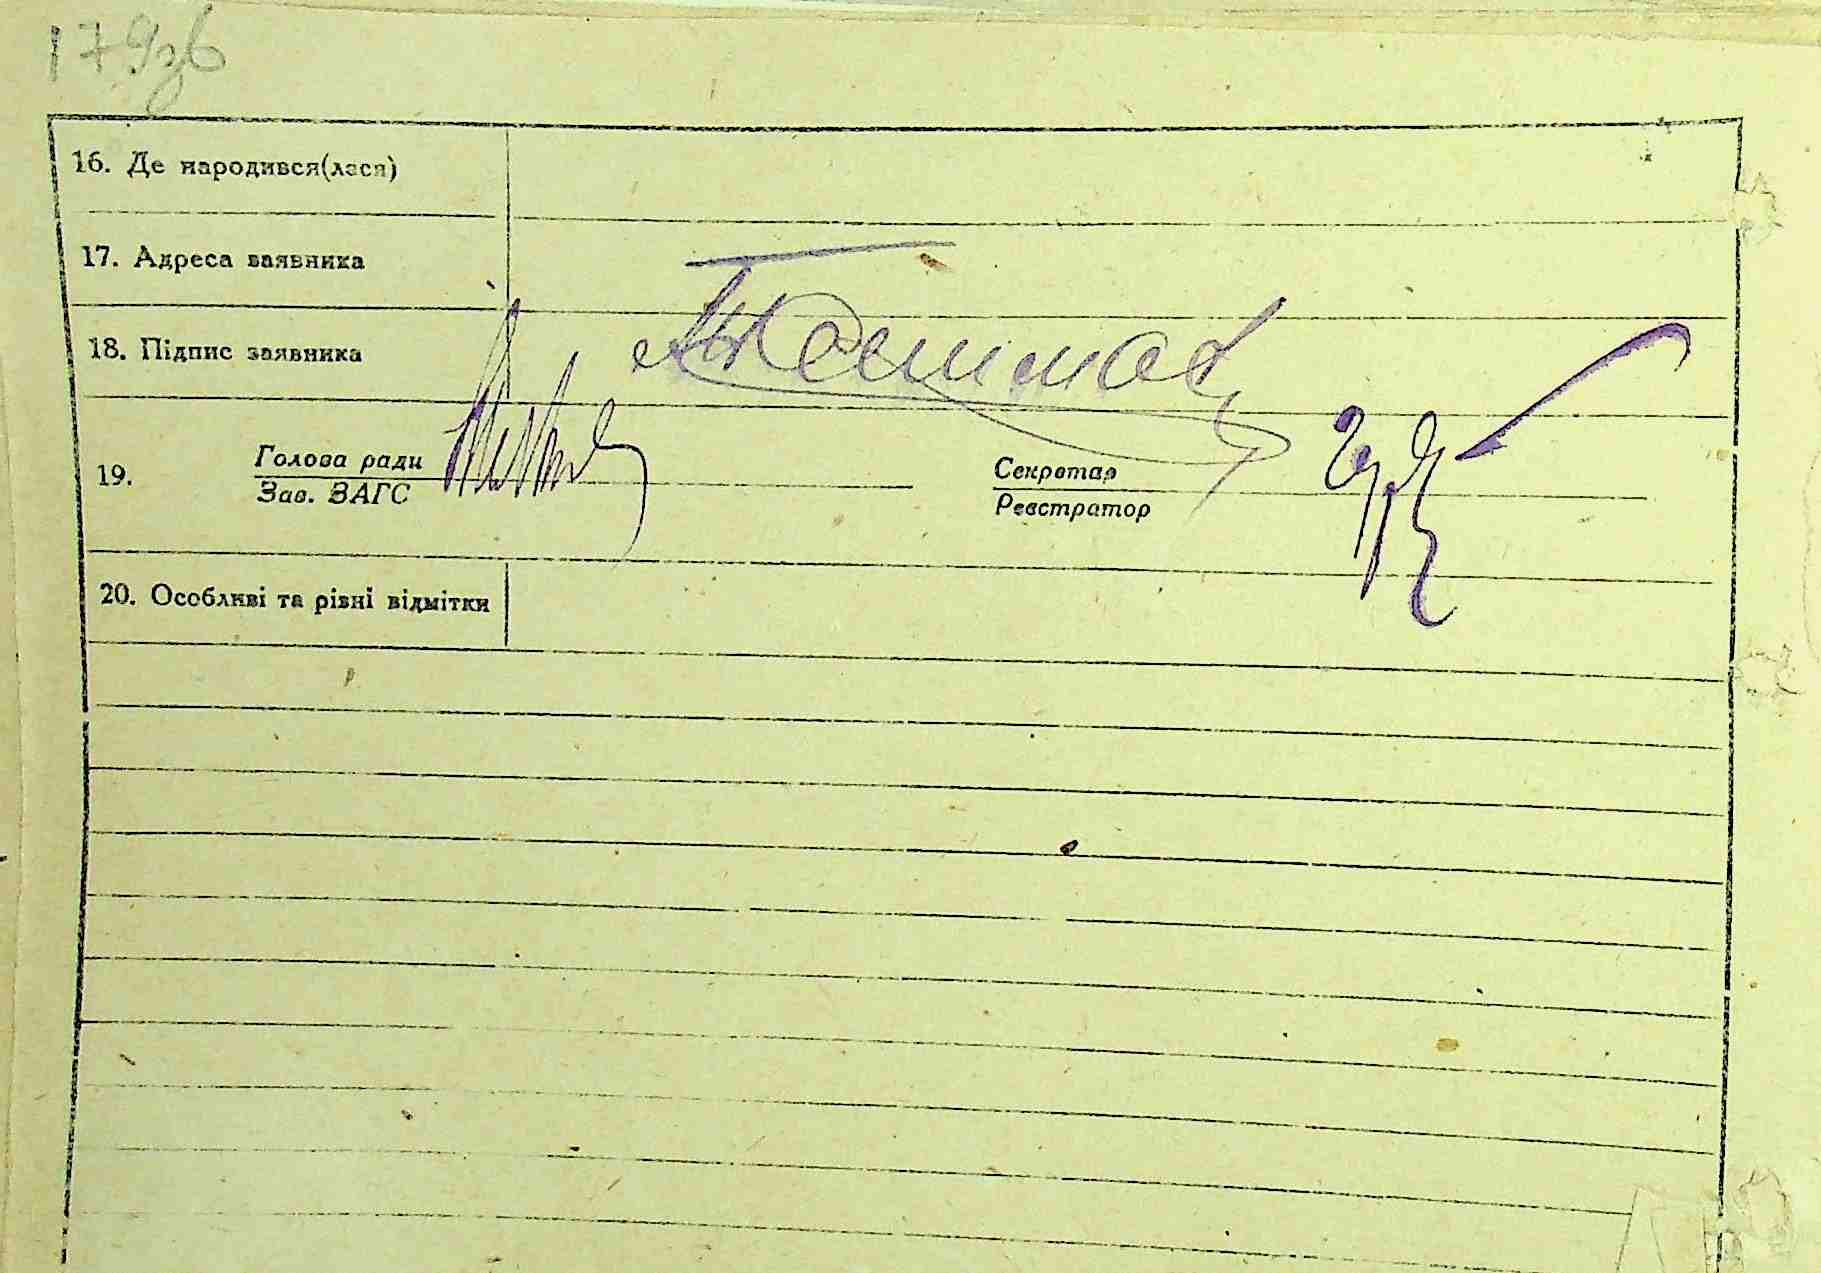 179зв
16. Де народився(лася)
17. Адреса заявника
18. Підпис заявника
19. Голова ради
Зав. ЗАГС
Секретар
Реєстратор
20. Особливі та різні відмітки